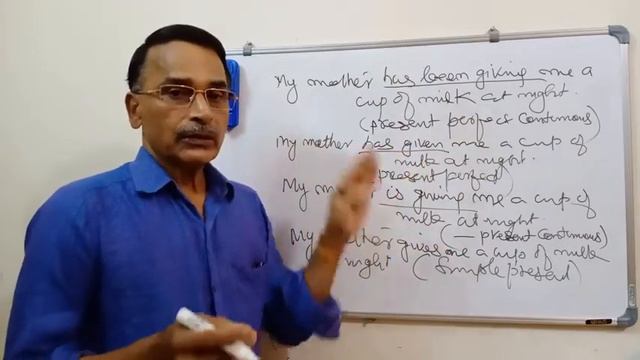 My mother has been giving me a
cup of milk at night.
(present perfect continuous)
My mother has given me a cup of
milk at night.
present perfect)
My is giving me a cup of
milk at night.
(— present continuous)
My mother gives me a cup of milk
night (Simple present)